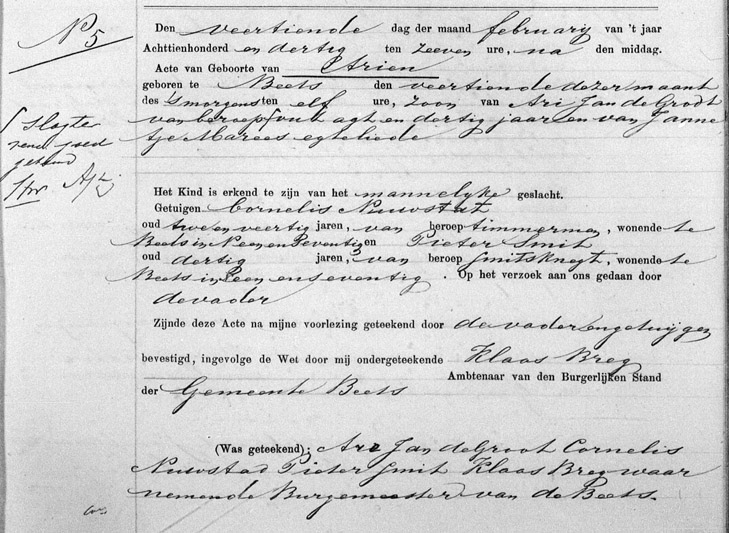 N 5
Den veertiende dag der maand february van 't jaar
Achttienhonderd en dertig ten zeeven ure, na den middag.
Acte van Geboorte van Arien
geboren te Beets den veertiende dezer maant
des 'smorgens ten elf ure, zoon van Ari Jan de Grodt
van beroep out agt en dertig jaar en van Janne
tje Marees egteliede
Slagte
goed
Het Kind is erkend te zijn van het mannelyke geslacht.
Getuigen Cornelis Nuwstat
oud twe en veertig jaren, van beroep timmerman, wonende te
Beets in N een en seventig en Pieter Smit
oud dertig jaren, van beroep Smitsknegt, wonende te
Beets in een en seventig. Op het verzoek aan ons gedaan door
de vader
Zijnde deze Acte na mijne voorlezing geteekend door de vader en getuijgen
bevestigd, ingevolge de Wet door mij ondergeteekende Klaas Breg
Ambtenaar van den Burgerlijken Stand
der Gemeente Beets
(Was geteekend); Ari Jan de Groot Cornelis
Nuwstad Pieter Smit Klaas Breg waar
nemende Burgemeester van de Beets.